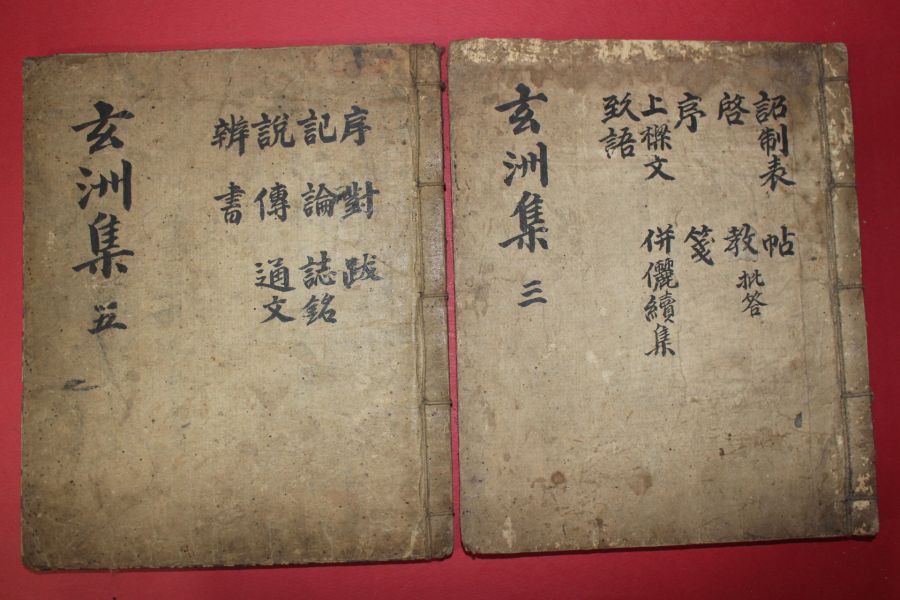 詔制表 帖
啓 教 批答
序 箋
上樑文 倂儷續集
致語
玄洲集 三
序 對 跋
記 論 誌銘
說 傳 通文
辨 書
玄洲集 五